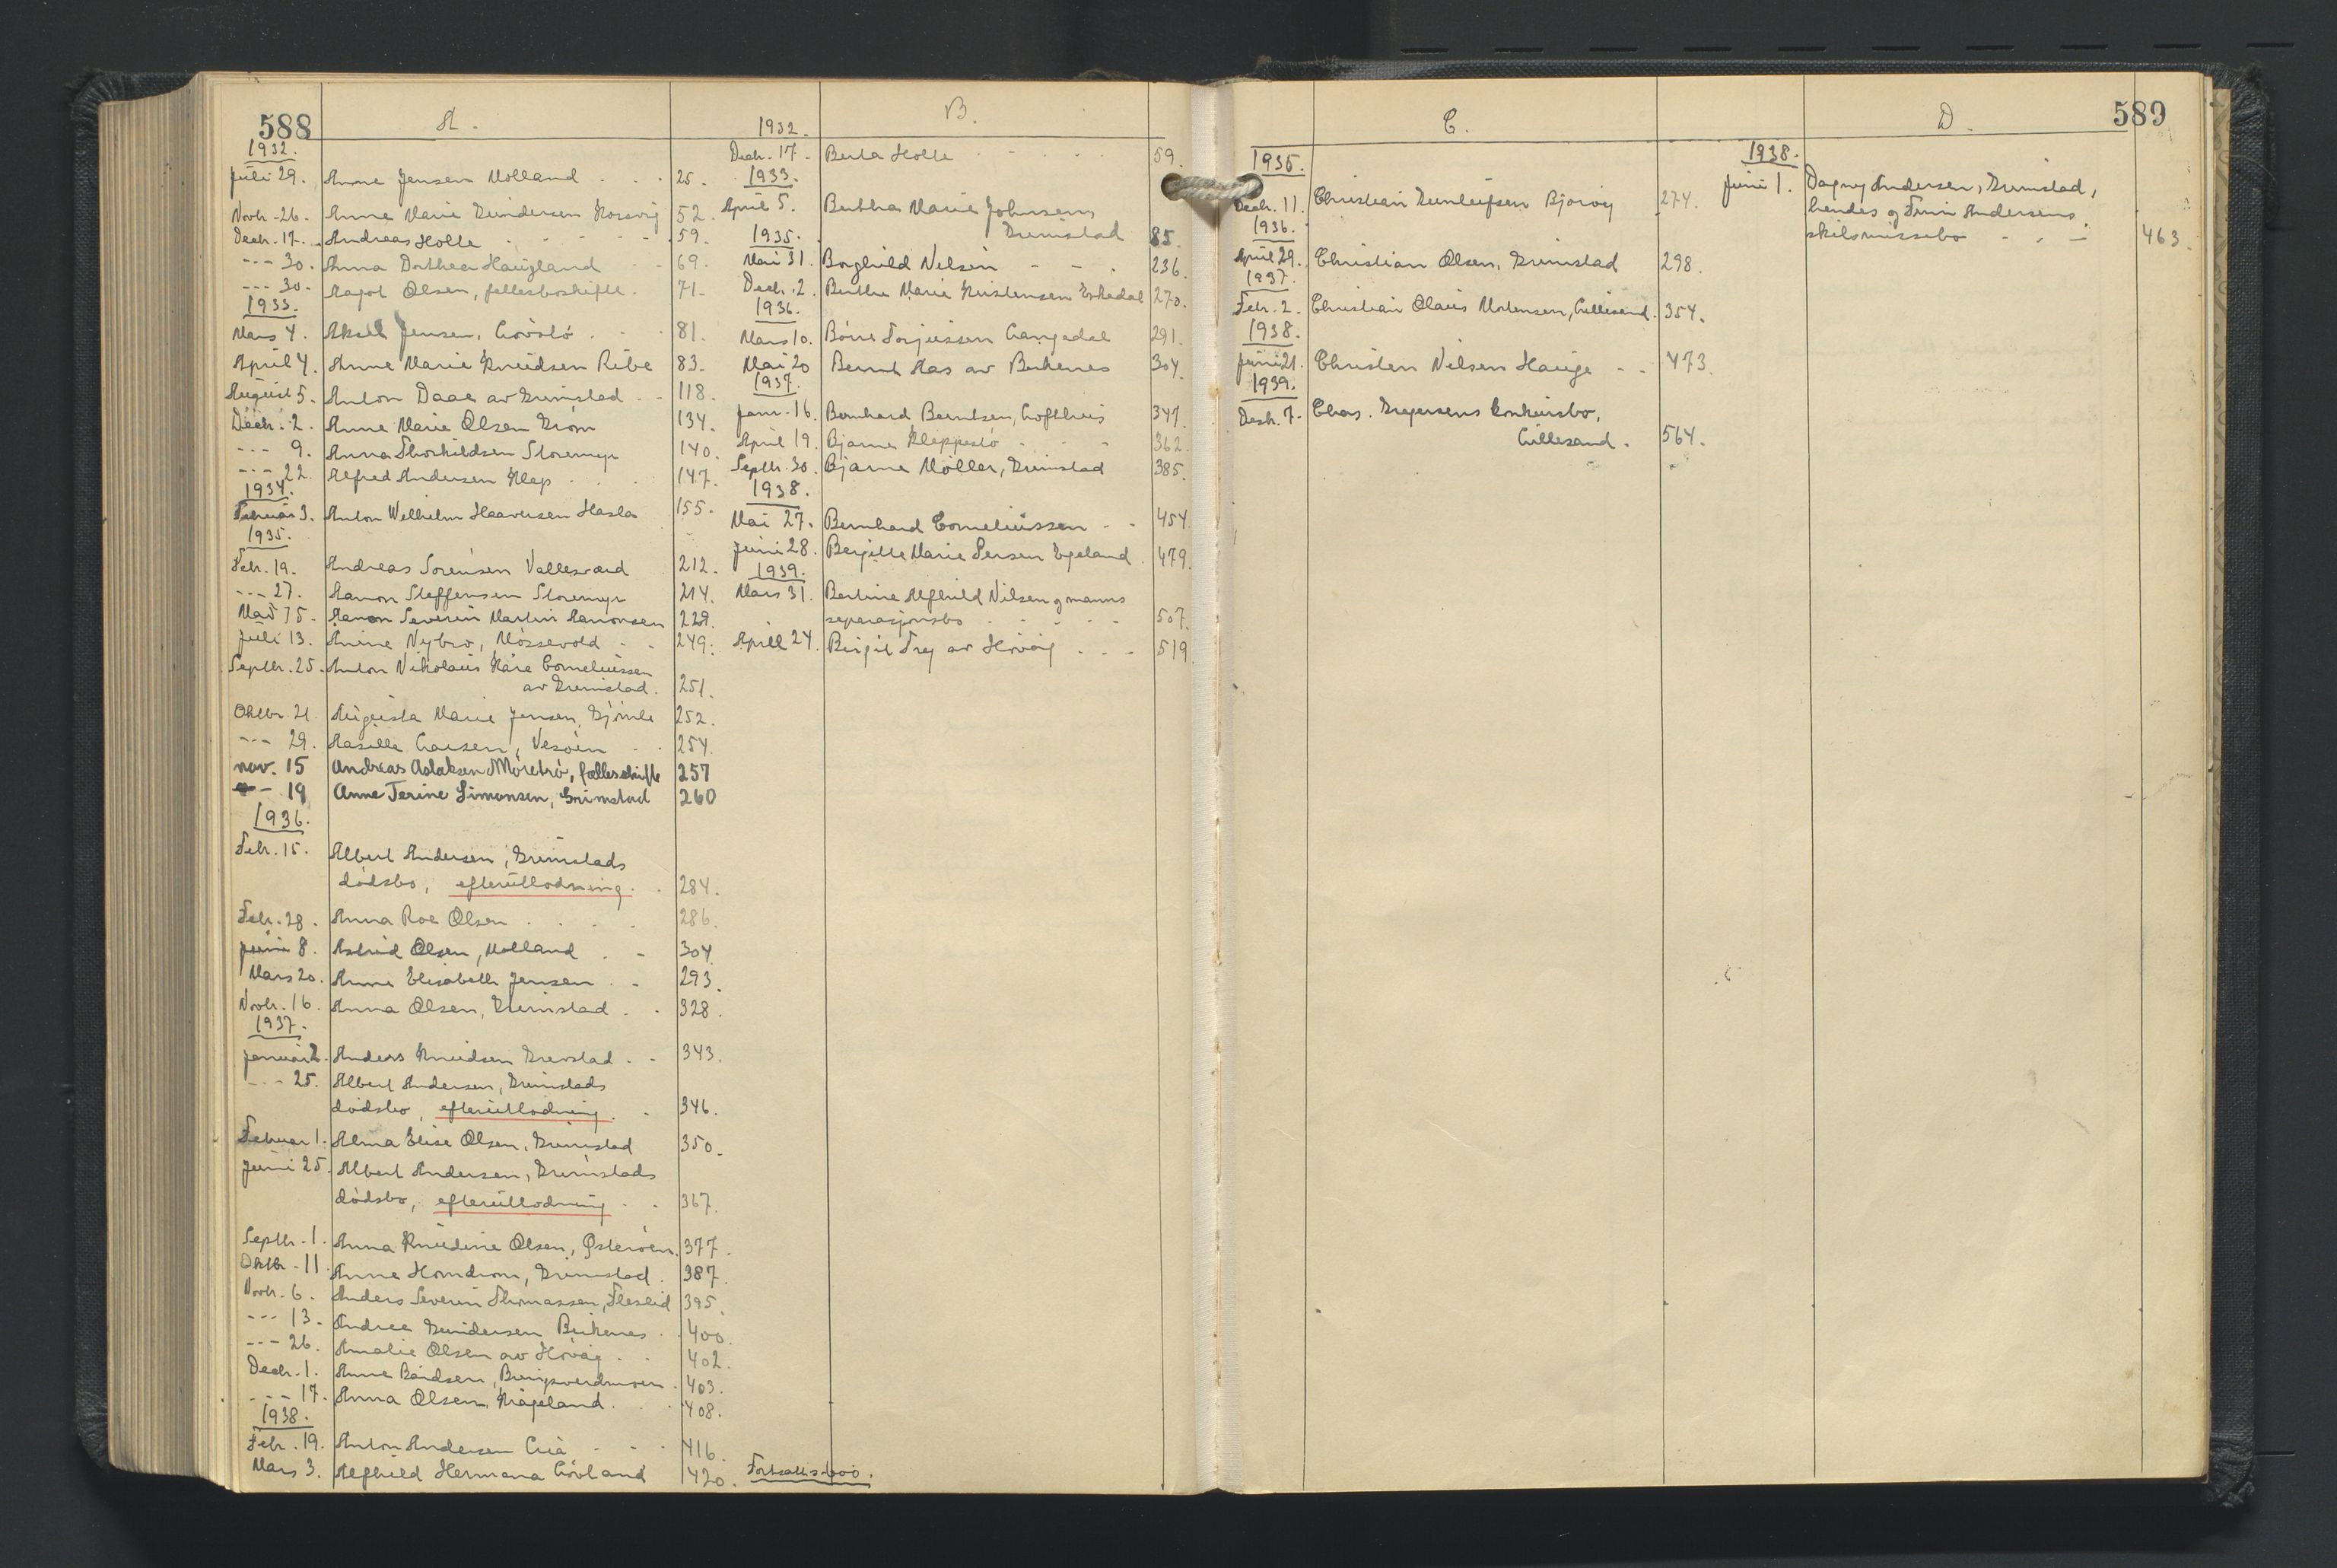 588
A.
1932.
Juli 29. Anne Jensen Molland . . . 25.
Novbr. 26. Anne Marie Gundersen Kosvig 52.
Decbr. 17. Andreas Holte . . . 59.
--- 30. Anna Dorthea Haugland . . 69.
--- 30. Aagot Olsen, fellesboskifte. 71.
1933.
Mars 4. Aksel Jensen, . . 81.
April 4. Anne Marie Knudsen Ribe 83.
August 5. Anton Daae av Grimstad . . 118.
Decbr. 2. Anne Marie Olsen Grøm 134.
--- 9. Anna Thorkildsen Storemyr 140.
--- 22. Alfred Andersen Klep . . . 147.
1934.
Februar 3. Anton Wilhelm Haaversen Hasla 155.
1935.
Febr. 19. Andreas Sørensen Vallesværd 212.
--- 27. Aanon Steffensen Storemyr 214.
Mai 15. Aanon Severin Martin Aanonsen 229.
Juli 13. Anine Nybro, Mossevold . . 249.
Septbr. 25. Anton Nikolaus Kåre Corneliussen
av Grimstad. 251.
Oktbr 21. Augusta Marie Jensen, Gjømle 252.
--- 29. Aasille Larsen, Vesøen . . 254.
nov. 15 Andreas Aslaksen Møretrø, fællesskifte 257
-- 19 Anne Terine Simonsen, Grimstad 260
1936.
Febr. 15. Albert Andersen, Grimstads
dødsbo, efterutlodning. . 284.
Febr. 28. Anna Roe Olsen . . . . 286.
Juni 8. Astrid Olsen, Molland . - 304.
Mars 20. Anne Elisabeth Jensen . . 293.
Novbr. 16. Anna Olsen, Grimstad . . 328.
1937.
Januar 2. Anders Knudsen Grevstad . . 343.
--- 25. Albert Andersen, Grimstads
dødsbo, efterutlodning. . 346.
Februar 1. Alma Elise Olsen, Grimstad 350.
Juni 25. Albert Andersen, Grimstads
dødsbo, efterutlodning . . 367.
Septbr. 1. Anna Knudine Olsen, Østerøen. 377.
Oktbr. 11. Anne Homdrom, Grimstad . 387.
Novbr. 6. Anders Severin Thomassen, 395.
--- 13. Andrea Gundersen Birkenes . . 400.
--- 26. Amalie Olsen av Høvåg . . 402.
Decbr. 1. Anne Baardsen, . 403.
--- 17. Anna Olsen, Krågeland. . . 408.
1938.
Febr. 19. Anton Andersen Lia . . . 416.
Mars 3. Alfhild Hermana Løvland 420. Fortsatt s. 600.
B.
1932.
Decbr. 17. Berta Holte . . . . 59.
1933.
April 5. Bertha Marie Johnsen,
Grimstad 85.
1935.
Mai 31. Borghild Nelsen - - . 236.
Decbr. 2. Berthe Marie Kristensen Eskedal 270.
1936.
Mars 10. Børre Torjussen Langedal 291.
Mai 20 Bernt Aas av Birkenes 304.
1937.
Janr. 16. Bernhard Berntsen, Lofthus 347.
April 19. Bjarne Kleppestø . . . 362.
Septbr. 30. Bjarne Møller, Grimstad 385.
1938.
Mai 27. Bernhard Corneliussen - - 454.
Juni 28. Bergitte Marie Persen Egeland. 479.
1939.
Mars 31. Bertine Alfhild Nilsen og manns
separasjonsbo . . . . . 507.
April 24. Birgit Try av Høvåg . . . 519.
589
C.
1935.
Decbr. 11. Christian Gunleifsen Bjorvig 274.
1936.
April 29. Christian Olsen, Grimstad 298.
1937.
Febr. 2. Christian Olaus Mortensen, Lillesand. 354.
1938.
Juni 21. Christen Nilsen Hauge - - 473.
1939.
Desbr. 7. Chas. Gregersens konkursbo,
Lillesand. 564.
D.
1938.
Juni 1. Dagny Andersen, Grimstad,
hendes og Finn Andersens
skilsmissebo - . - 463.